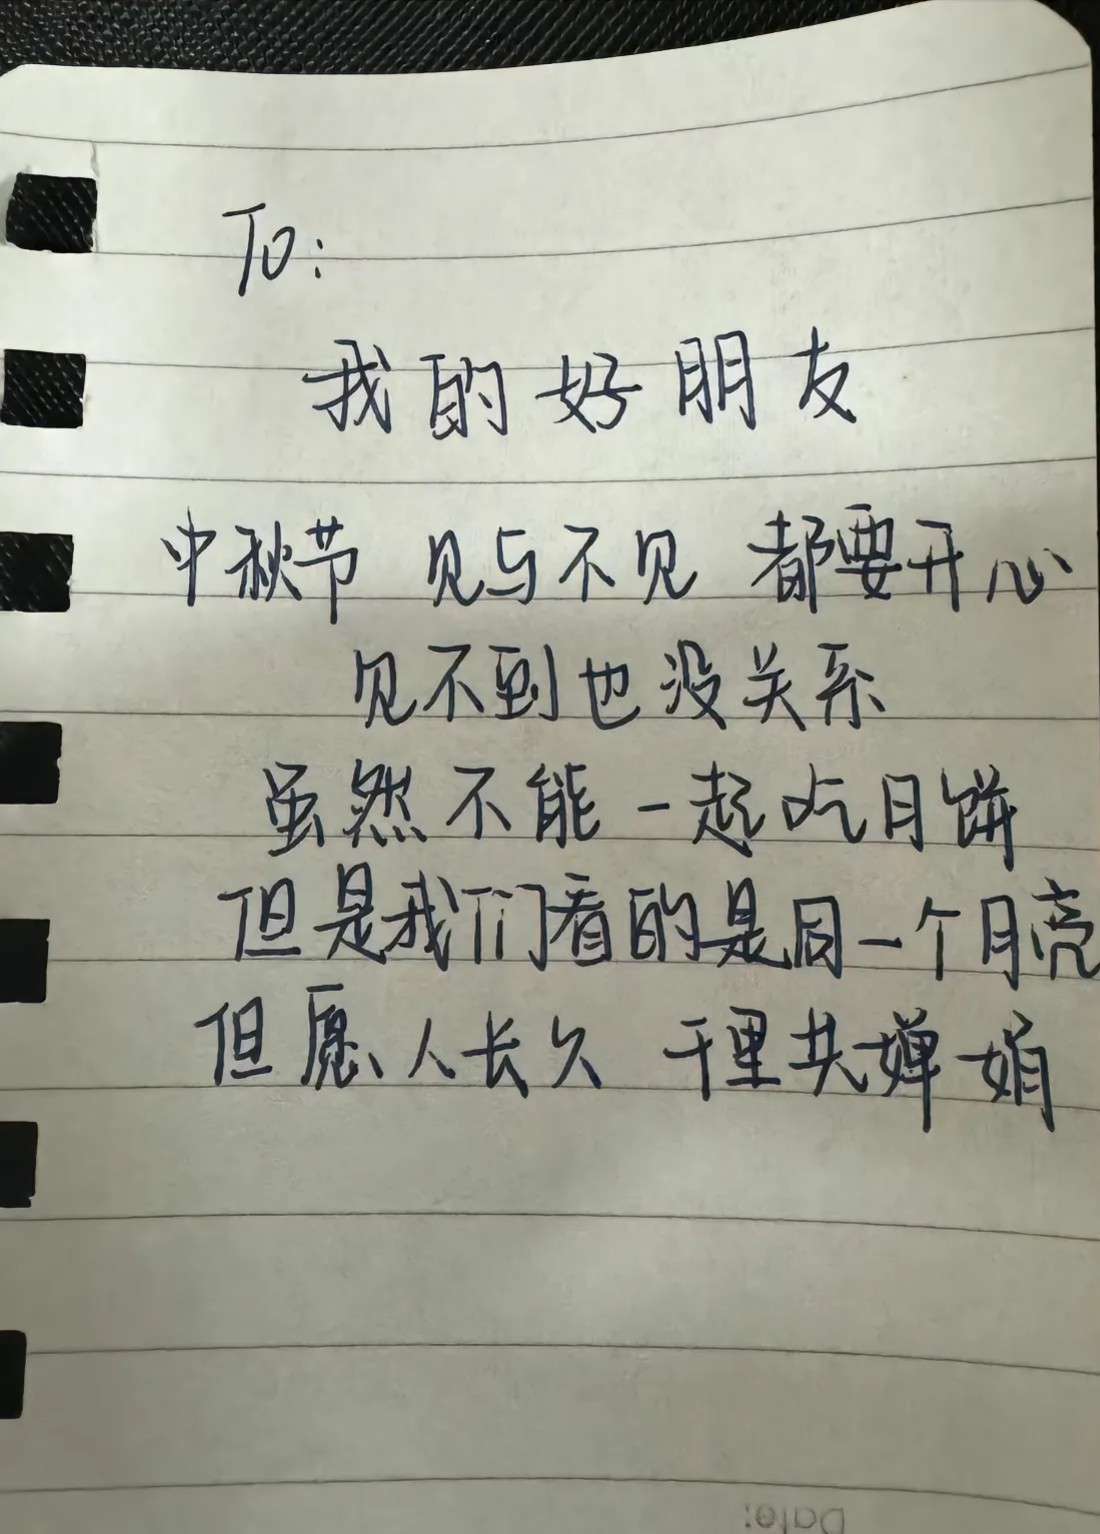 To:
我的好朋友
中秋节 见与不见 都要开心
见不到也没关系
虽然不能一起吃月饼
但是我们看的是同一个月亮
但愿人长久 千里共婵娟
Date: